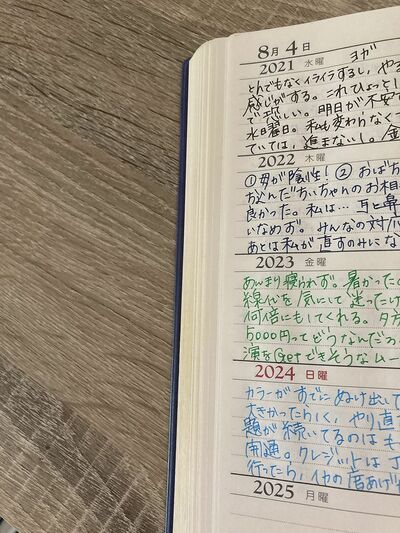 8月4日
2021 水曜 ヨガ
とんでもなくイライラするし、やる
感じがする。これひょっとし
で恐しい。明日が不安で
水曜日。私も変わらなく
ていては、進まないし。金
2022 木曜
①母が陰性！②おばち
が込んだちいちゃんのお相
良かった。私は…耳と鼻
いなめず。みんなの対応
あとは私が直すのみにな
2023 金曜
あんまり寝られず。暑かったの
線状を気にして迷ったけ
何倍にもしてくれる。夕方
5000円ってどうなんだろ
演をGetできそうなムー
2024 日曜
カラーがすでにぬけ出して
大きかったらしく、やり直
題が続いてるのはも
開通。クレジットはJ
行ったら、イヤの店あげ
2025 月曜